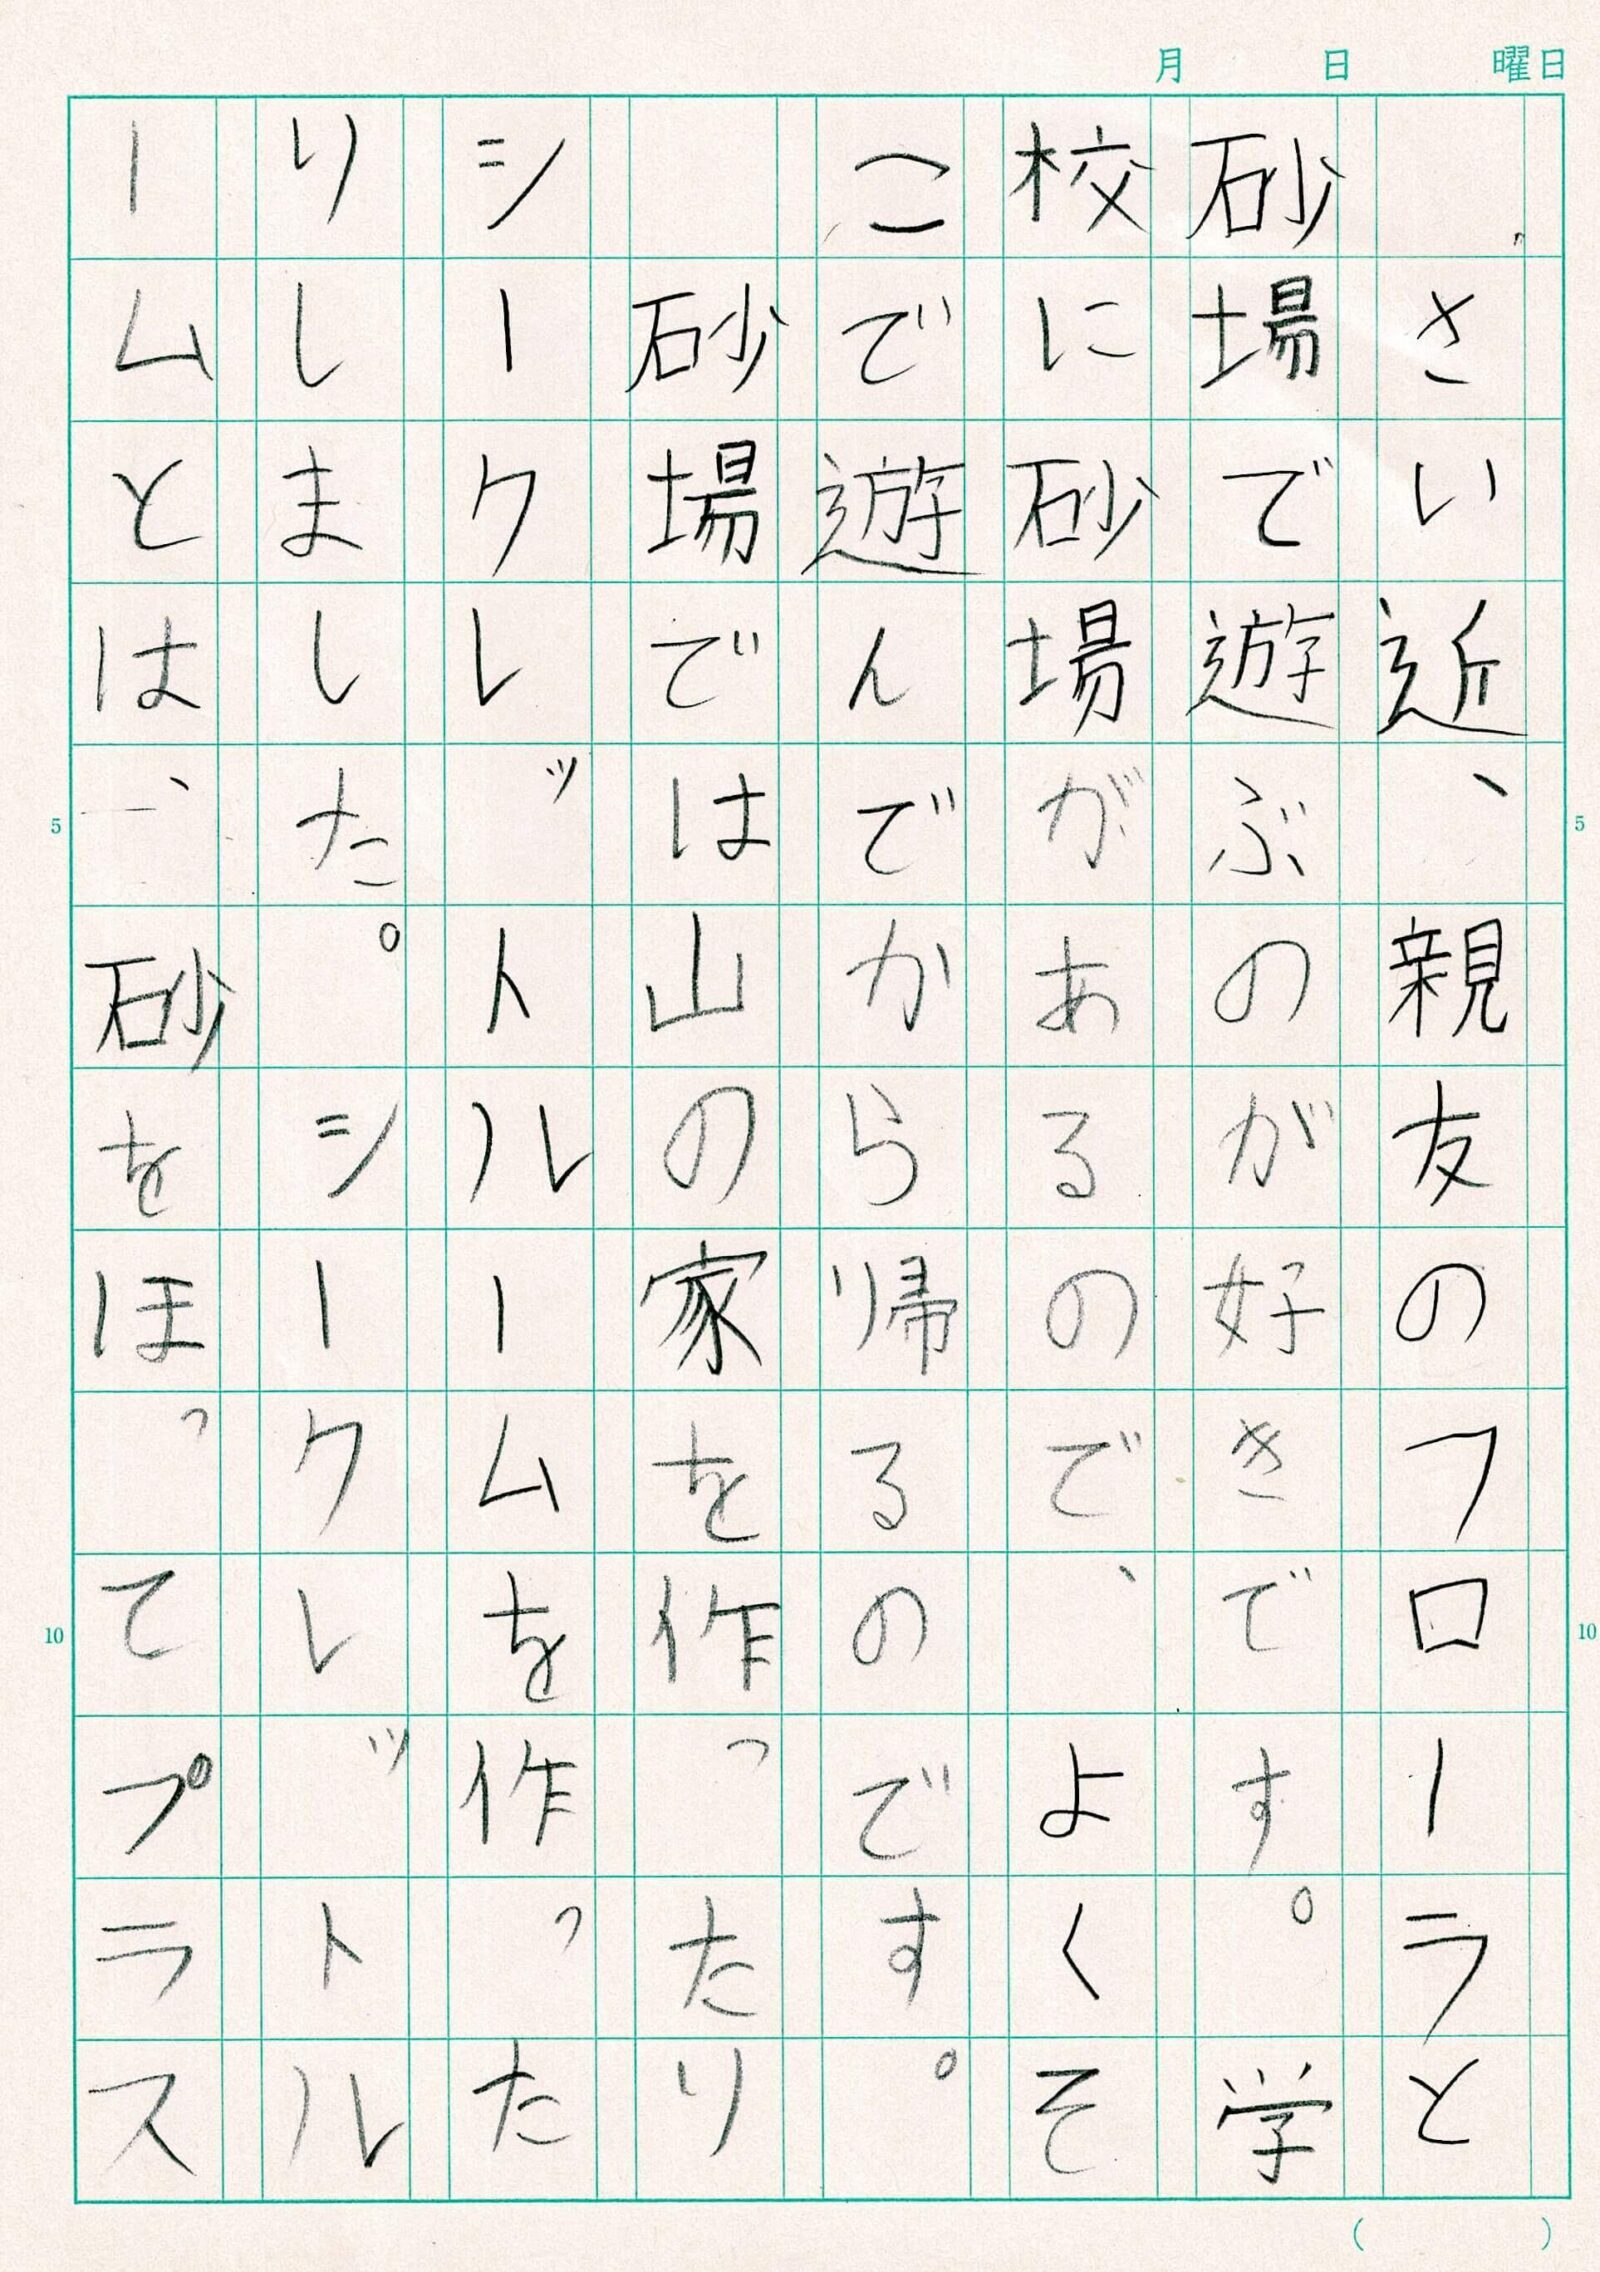 月 日 曜日
さい近、親友のフローラと
砂場で遊ぶのが好きです。学
校に砂場があるので、よくそ
こで遊んでから帰るのです。
砂場では山の家を作ったり
シークレットルームを作ったた
りしました。シークレットル
ームとは、砂をほってプラス
5
10
5
10
( )